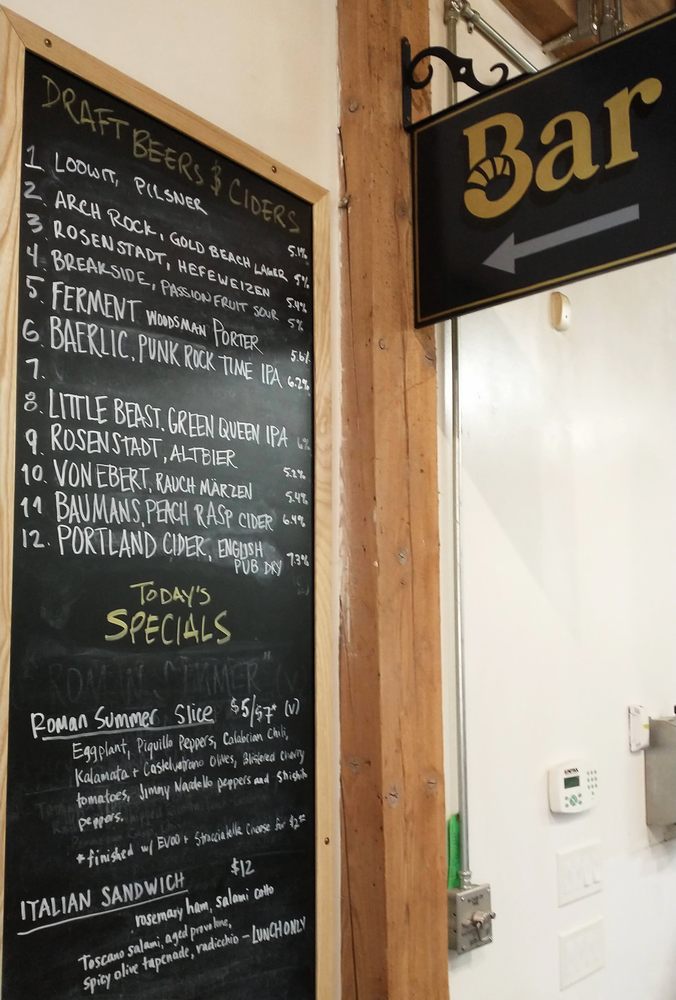 DRAFT BEERS & CIDERS
1. LOOWIT, PILSNER 5.1%
2. ARCH ROCK, GOLD BEACH LAGER 5%
3. ROSENSTADT, HEFEWEIZEN 5.4%
4. BREAKSIDE, PASSIONFRUIT SOUR 5%
5. FERMENT WOODSMAN PORTER 5.6%
6. BAERLIC, PUNK ROCK TIME IPA 6.2%
7.
8. LITTLE BEAST. GREEN QUEEN IPA 6%
9. ROSENSTADT, ALTBIER 5.2%
10. VON EBERT, RAUCH MÄRZEN 5.4%
11 BAUMANS, PEACH RASP CIDER 6.9%
12. PORTLAND CIDER, ENGLISH
PUB DRY 7.3%
TODAY'S
SPECIALS
Roman Summer Slice $5/$7* (V)
Eggplant, Piquillo Peppers, Calabrian Chili,
Kalamata + Castelvetrano Olives, Blistered Cherry
tomatoes, Jimmy Nardello peppers and Shishito
peppers.
*finished w/ EVOO + Stracciatella Cheese for $2
ITALIAN SANDWICH $12
rosemary ham, salami cotto
Toscano salami, aged provolone,
spicy olive tapenade, radicchio - LUNCH ONLY
Bar